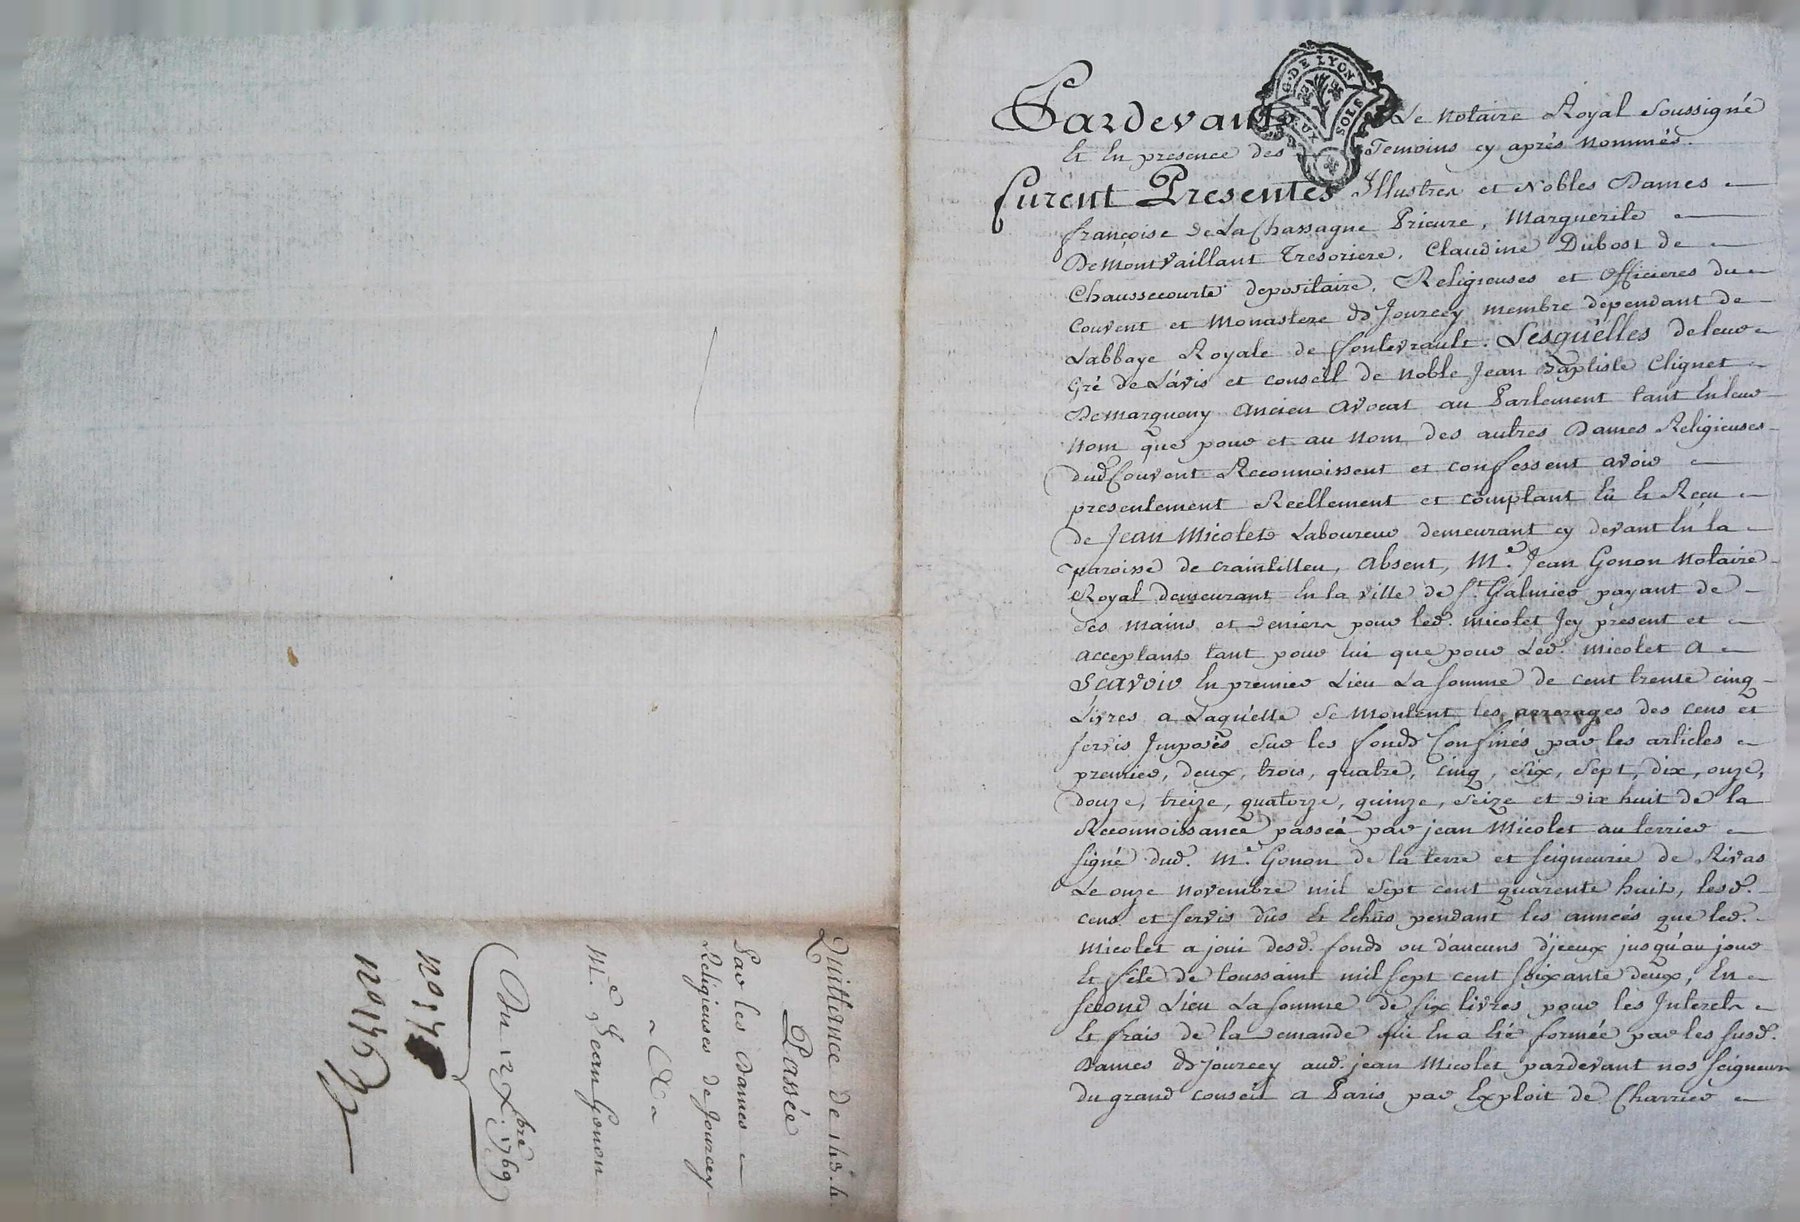 G. DE LYON
DEUX SOLS
Pardevant Le Notaire Royal Soussigné
Et En presence des Temoins cy aprés Nommés.
furent Presentes Illustres et Nobles Dames
françoise de La Chassagne Prieure, Marguerite
De Montvaillant Tresoriere, Claudine Dubost de
Chaussecourte depositaire, Religieuses et officieres du
Couvent et Monastere de Jourcey membre dependant de
Labbaye Royale de fontevrault. Lesquelles de leur
Gré de L'avis et conseil de Noble Jean Baptiste Clignet
De Marqueny Ancien Avocat au Parlement tant En leur
Nom que pour et au Nom des autres Dames Religieuses
dud. Couvent Reconnoissent et confessent avoir
presentement Reellement et comptant Eû Et Reçu
de Jean Micolet Laboureur demeurant cy devant En la
paroisse de craintilleu, Absent, Me. Jean Gonon Notaire
Royal demeurant En la ville de St. Galmier payant de
ses mains et deniers pour led. Micolet Icy present et
Acceptant tant pour lui que pour Led. Micolet A
Scavoir En premier Lieu La somme de cent trente cinq
Livres a Laquelle se Montent les arrerages des cens et
servis Imposés sur les fonds Confinés par les articles
premier, deux, trois, quatre, cinq, six, sept, dix, onze,
douze, treize, quatorze, quinze, seize et dix huit de la
Reconnoissance passeé par jean Micolet au terrier
signé dud. Me. Gonon de la terre et seigneurie de Rivas
Le onze Novembre mil sept cent quarente huit, lesd.
cens et servis dus Et Echus pendant les anneés que led.
Micolet a joui desd. fonds ou d'aucuns d'jceux jusqu'au jour
Et fête de toussaint mil sept cent soixante deux, En
second Lieu La somme de six livres pour les Interets
Et frais de la demande qui En a été formée par les susd.
Dames de Jourcey aud. jean Micolet pardevant nos seigneurs
du grand Conseil a Paris par Exploit de Charrier
Quittance de 143.
Passée
Par les Dames
Religieuses de Jourcey
a
Me. Jean Gonon
Du 12 Xbre. 1769